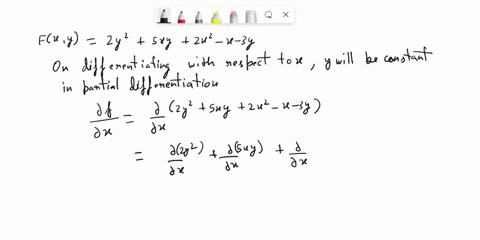 F(x,y) = 2y² + 5xy + 2x² - x - 3y
On differentiating with respect to x, y will be constant
in partial differentiation
∂f/∂x = ∂/∂x (2y² + 5xy + 2x² - x - 3y)
= ∂(2y²)/∂x + ∂(5xy)/∂x + ∂/∂x